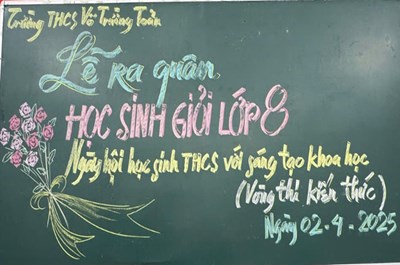 Trường THCS Võ Trường Toản
Lễ ra quân
HỌC SINH GIỎI LỚP 8
Ngày hội học sinh THCS với sáng tạo khoa học
(Vòng thi kiến thức)
Ngày 02.4.2025